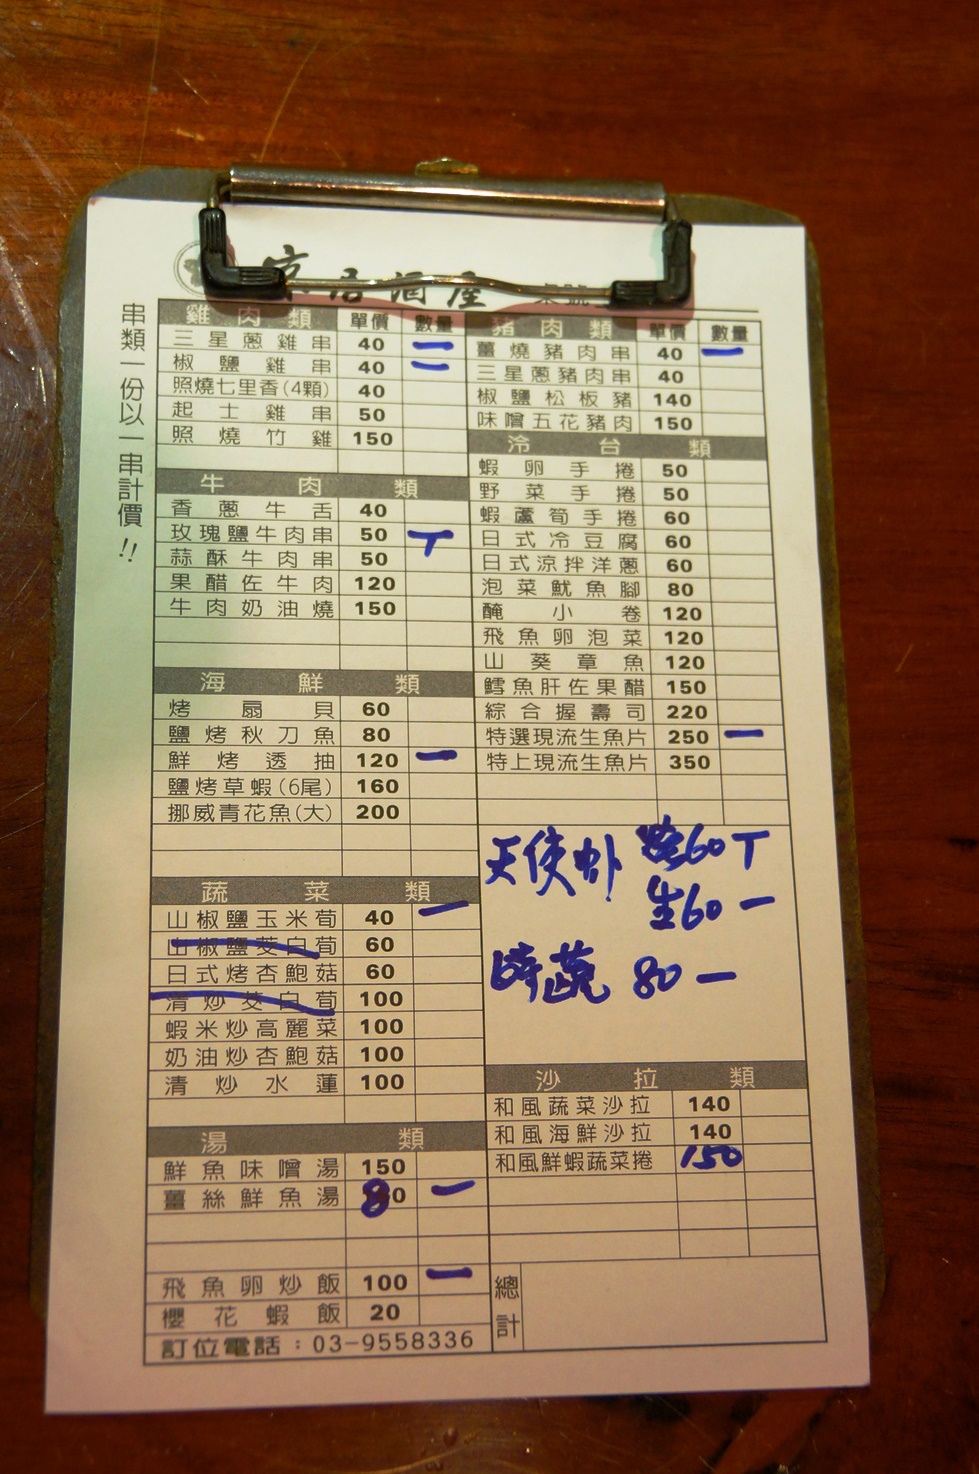 居酒座
串類一份以一串計價!!
雞肉類 單價 數量
三星蔥雞串 40 二
椒鹽雞串 40 二
照燒七里香(4顆) 40
起士雞串 50
照燒竹雞 150
牛肉類
香蔥牛舌 40
玫瑰鹽牛肉串 50 T
蒜酥牛肉串 50
果醋佐牛肉 120
牛肉奶油燒 150
海鮮類
烤扇貝 60
鹽烤秋刀魚 80
鮮烤透抽 120 一
鹽烤草蝦(6尾) 160
挪威青花魚(大) 200
蔬菜類
山椒鹽玉米荀 40 一
山椒鹽茭白荀 60
日式烤杏鮑菇 60
清炒茭白荀 100
蝦米炒高麗菜 100
奶油炒杏鮑菇 100
清炒水蓮 100
湯類
鮮魚味噌湯 150
薑絲鮮魚湯 80 一
飛魚卵炒飯 100 一
櫻花蝦飯 20
訂位電話:03-9558336
豬肉類 單價 數量
薑燒豬肉串 40 一
三星蔥豬肉串 40
椒鹽松板豬 140
味噌五花豬肉 150
冷台類
蝦卵手捲 50
野菜手捲 50
蝦蘆筍手捲 60
日式冷豆腐 60
日式涼拌洋蔥 60
泡菜魷魚腳 80
醃小卷 120
飛魚卵泡菜 120
山葵章魚 120
鱈魚肝佐果醋 150
綜合握壽司 220
特選現流生魚片 250 一
特上現流生魚片 350
天使 60 T
生60 一
時蔬 80 一
沙拉類
和風蔬菜沙拉 140
和風海鮮沙拉 140
和風鮮蝦蔬菜捲 150
總計